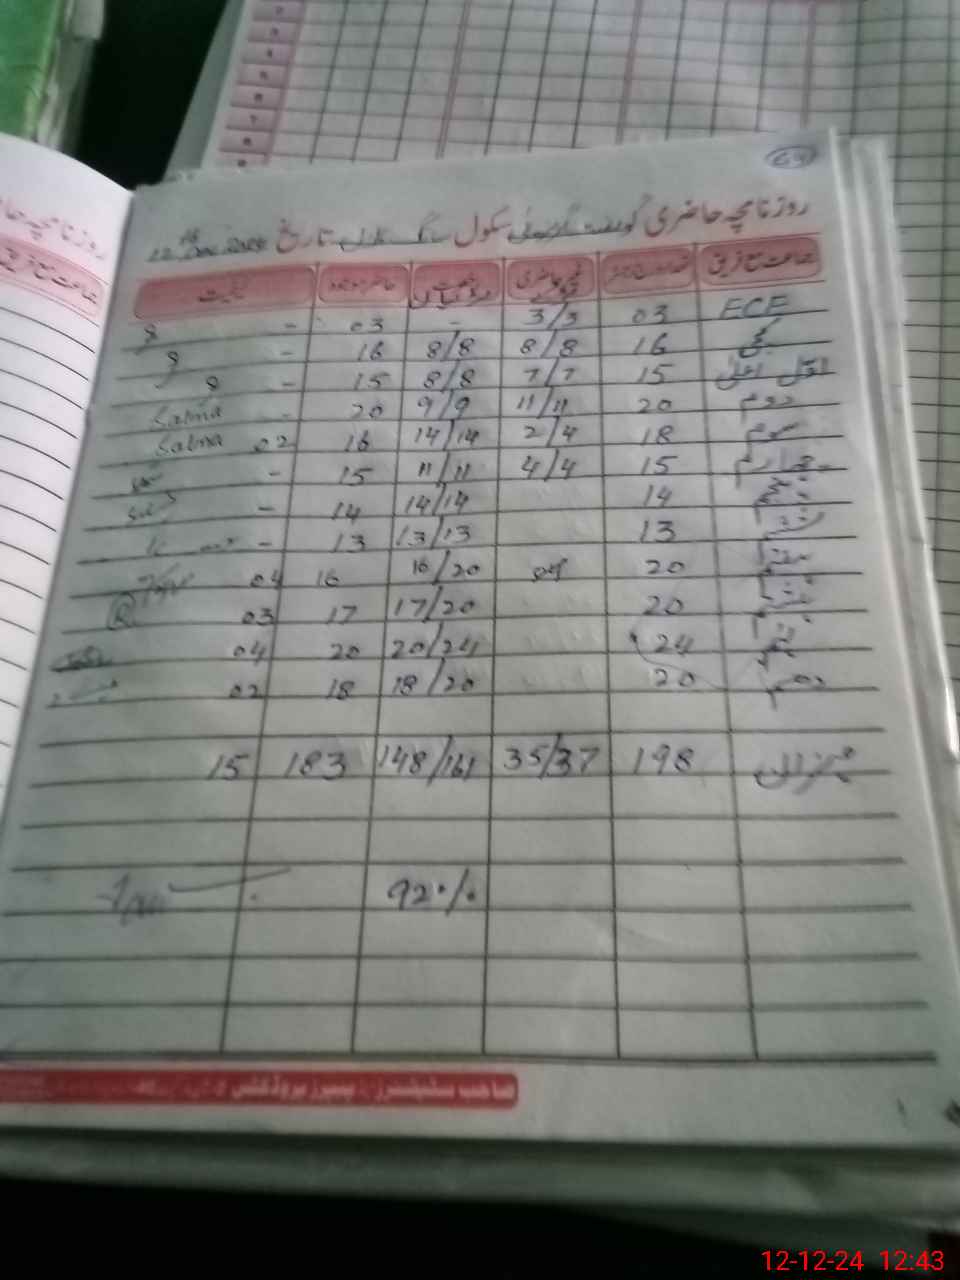 69
روزنامچہ حاضری گورنمنٹ سکول تاریخ 12th Dec 2024
جماعت مع فریق حاضر موجود کیفیت
ECE 03 3/3 - 03 -
کچی 16 8/8 8/8 16 -
اول اعلیٰ 15 7/7 8/8 15 -
دوم 20 11/11 9/9 20 - Salma
سوم 18 2/4 14/14 16 02 Salma
چہارم 15 4/4 11/11 15 -
پنجم 14 14/14 14 -
ششم 13 13/13 13 -
ہفتم 20 16/20 16 04
ہشتم 20 17/20 17 03
نہم 24 20/24 20 04
دہم 20 18/20 18 02
میزان 198 35/37 148/161 183 15
92%
صاحب سٹیشنرز پیپرز پروڈکٹس
روزنامچہ حا
جماعت مع فریق
12-12-24 12:43